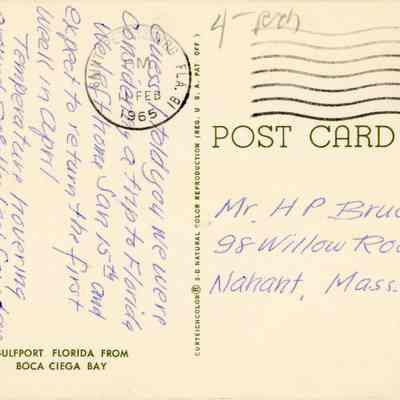 4-
PM
FEB
1965
FLA.
POST CARD
Guess I told you we were
considering a trip to Florida
We left home Jan 15th and
expect to return the first
week in April
Temperature hovering
Mr. H P
98 Willow
Nahant, Mass.
CURTEICHCOLOR® 3-D NATURAL COLOR REPRODUCTION (REG. U. S. A. PAT. OFF.)
GULFPORT FLORIDA FROM
BOCA CIEGA BAY